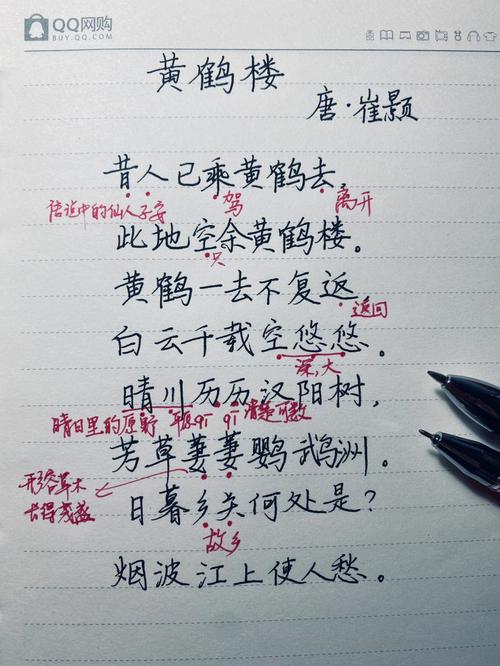 QQ网购
BUY.QQ.COM
黄鹤楼
唐·崔颢
昔人已乘黄鹤去,
传说中的仙人子安 驾 离开
此地空余黄鹤楼。
只
黄鹤一去不复返
返回
白云千载空悠悠。
深,大
晴川历历汉阳树,
晴日里的原野 清楚可数
芳草萋萋鹦鹉洲。
形容草木
长得茂盛
日暮乡关何处是?
故乡
烟波江上使人愁。